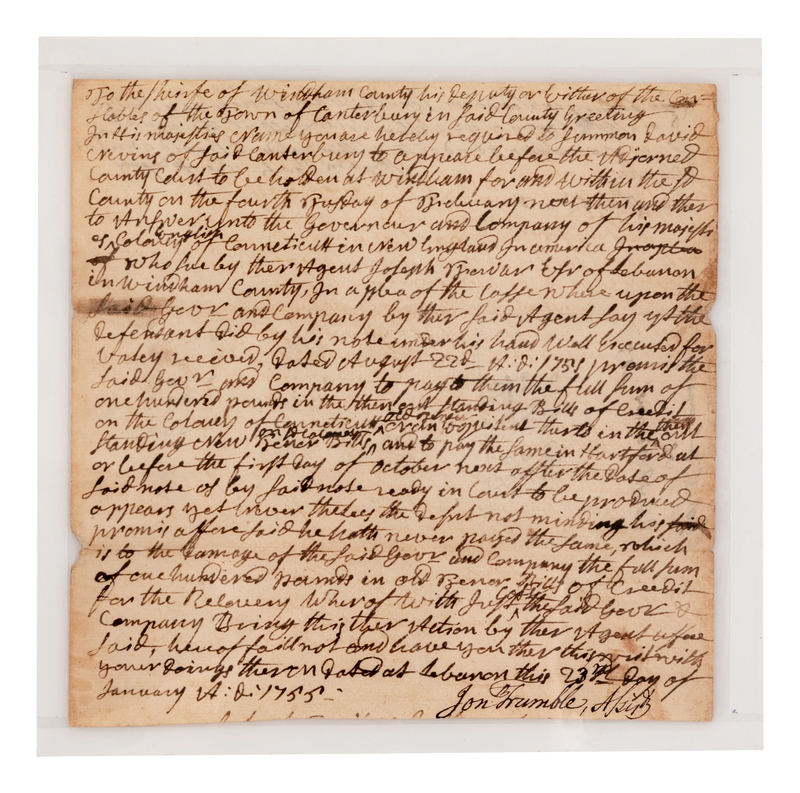 To the Shirife of Windham County his deputy or Either of the Con=
stables of the Town of Canterbury in said County Greeting
In His majesties Name you are hereby required to summon David
Nevins of said Canterbury to appeare before the Adjorned
County Court to be holden at Windham for and within the sd
County on the fourth Tusday of Febuary next then and ther
to Answer unto the Governour and Company of his majesti
es English Colony of Connecticutt in New England in America
who sue by ther Agent Joseph Esr of Lebanon
in Windham County, In a plea of the Casse where upon the
said Govr and Company by ther said Agent say yt the
defendant Did by his note under his hand Well Excecused for
Valey received, Dated August 22d A:d: 1751 promis the
said Govr and Company to pay to them the full sum of
one hundered pounds in the then out standing Bills of Creedit
on the Coloney of Connecticutt old tenor or Equivelent therto in the then out
standing New Tenor Bills on sd Coloney, and to pay the same in Hartford at
or before the first Day of October next after the Date of
said note as by said note ready in Court to be produced
appears yet never theless the Defnt not minding his
promis affore said he hath never payed the same, which
is to the Damage of the said Govr and Company the full sum
of one hundered pounds in old Tenor Bills of Creedit
for the Recovery Wher of with Just Cost the said Govr &
Company Bring this ther Action by ther Agent affore
said, hereof faill not and have you ther this writ with
your doings ther on Dated at Lebanon this 23rd Day of
January A:d: 1755 -
Jon Trumble, Assist